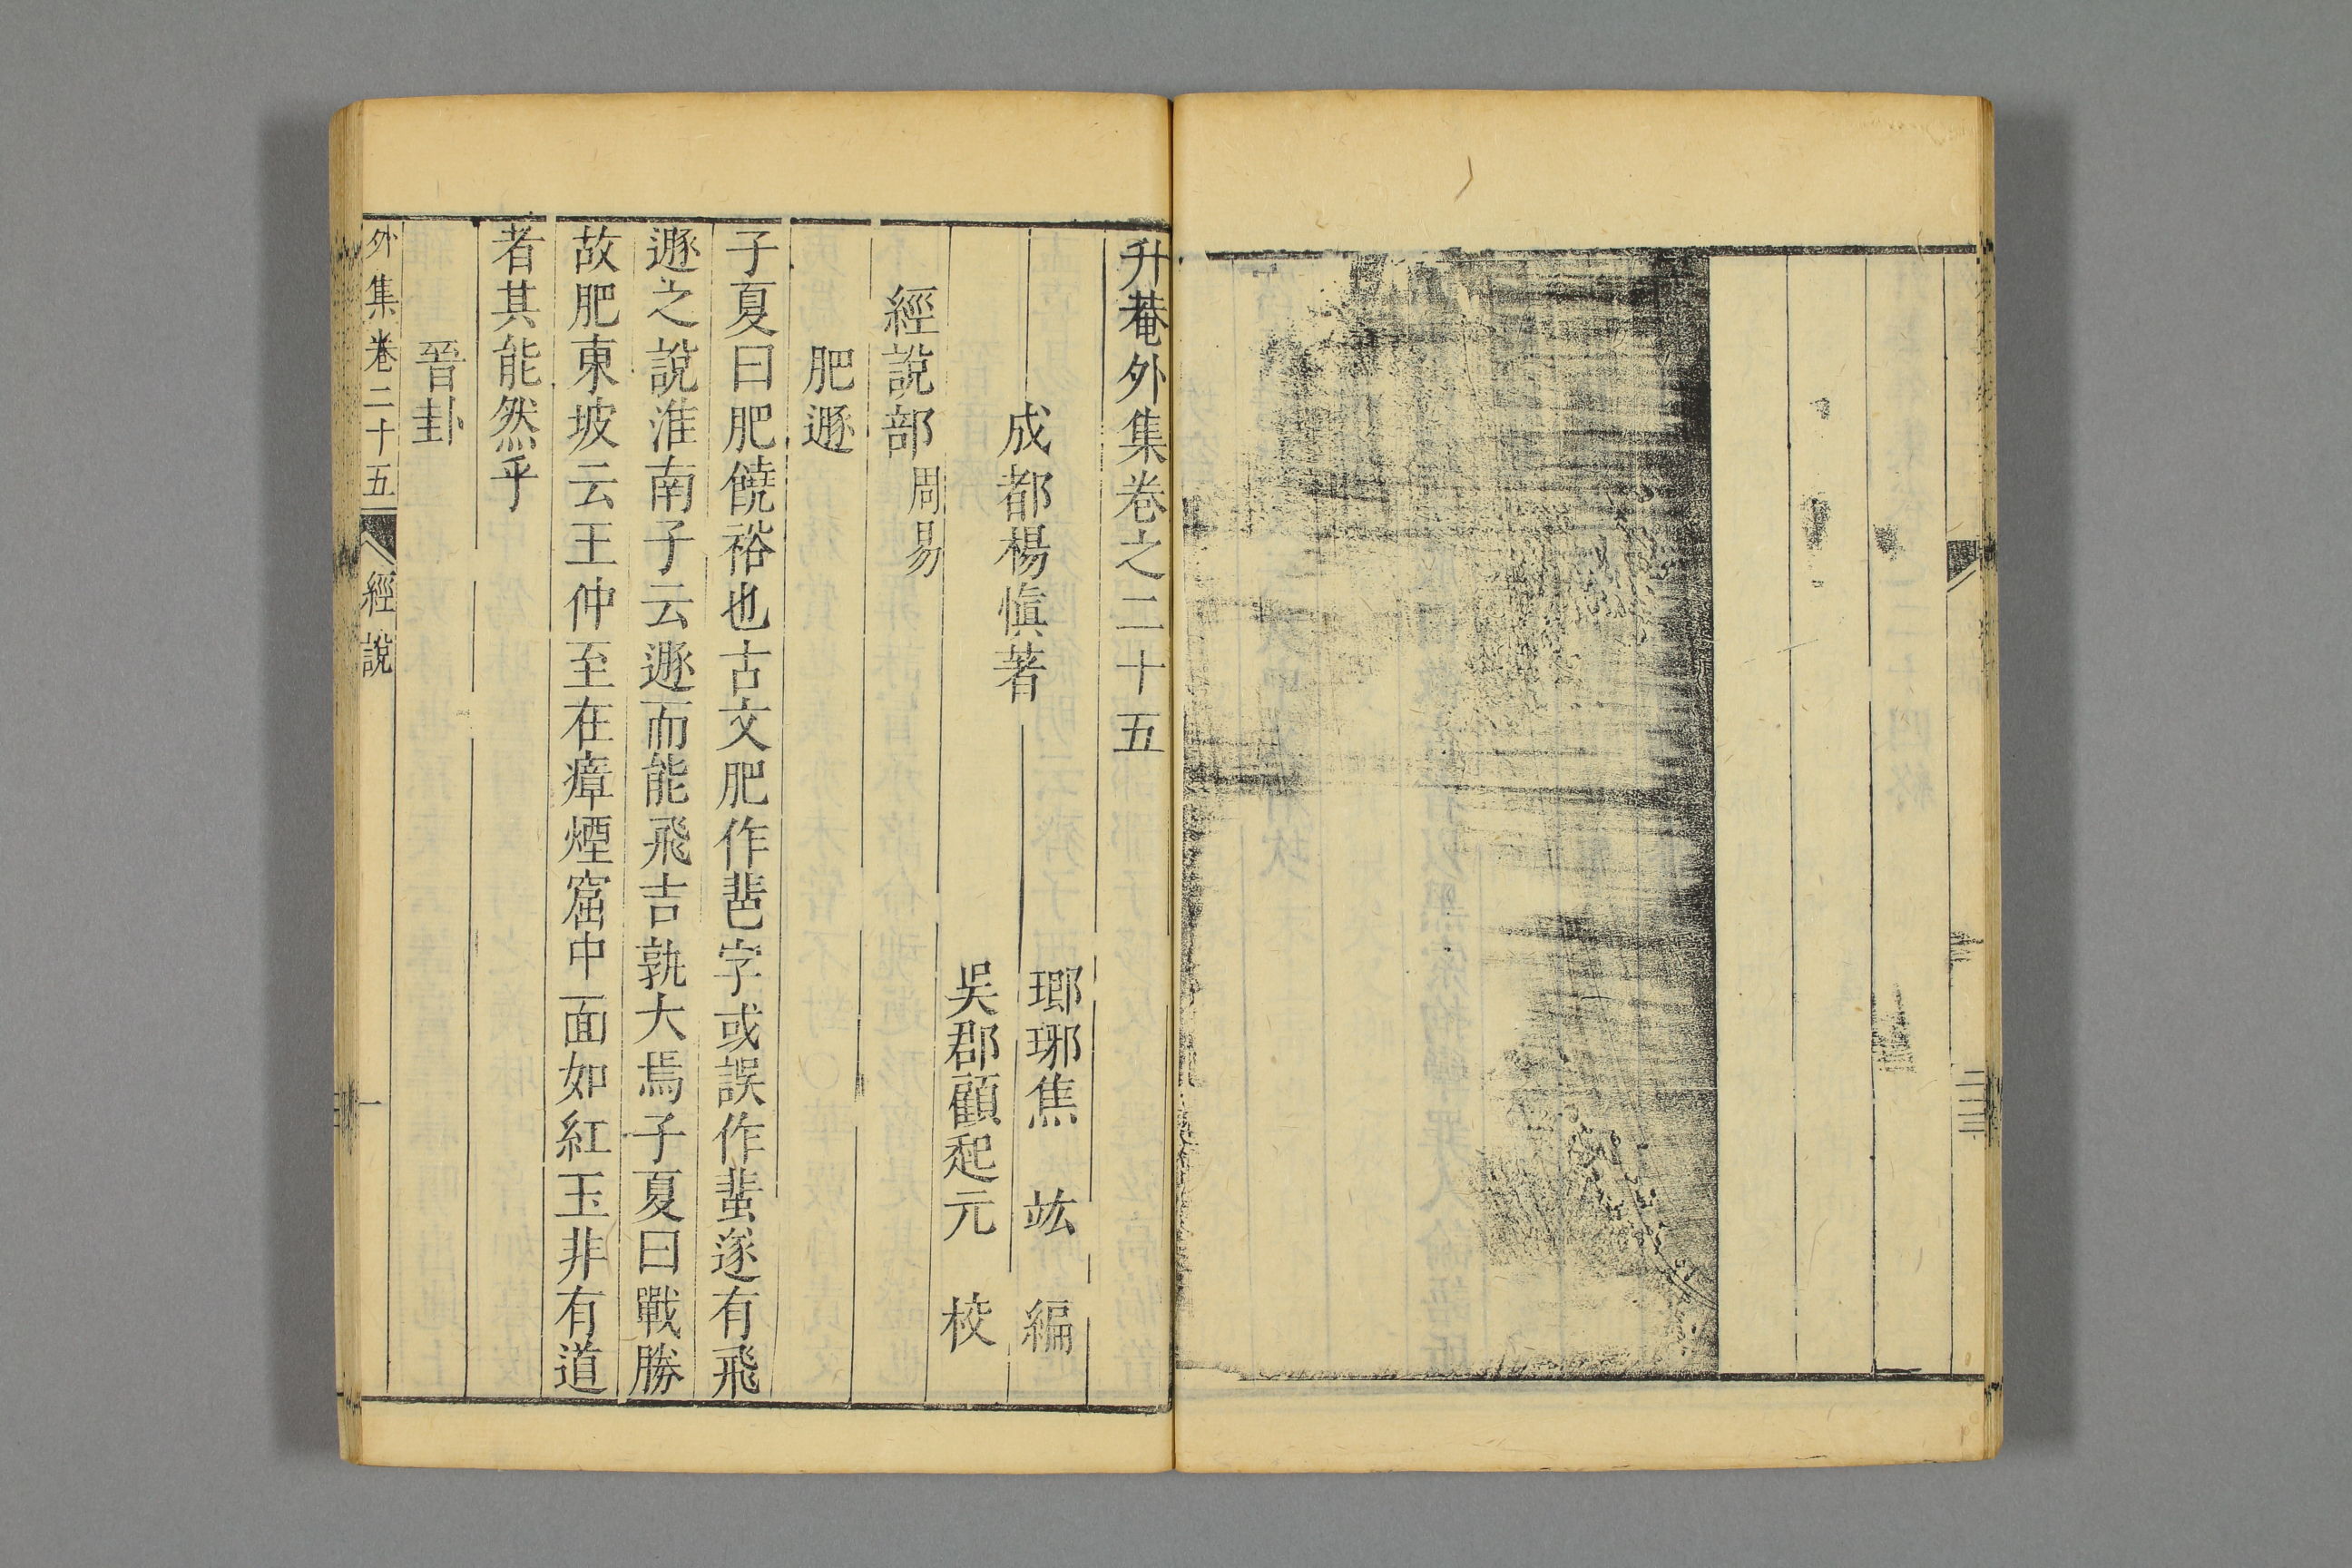 二三
升菴外集卷之二十五
成都楊愼著
瑯琊焦竑編
吳郡顧起元校
經說部周易
肥遯
子夏曰肥饒裕也古文肥作𦱁字或誤作蜚遂有飛
遯之說淮南子云遯而能飛吉孰大焉子夏曰戰勝
故肥東坡云王仲至在瘴煙窟中面如紅玉非有道
者其能然乎
晉卦
外集卷二十五
經說
一